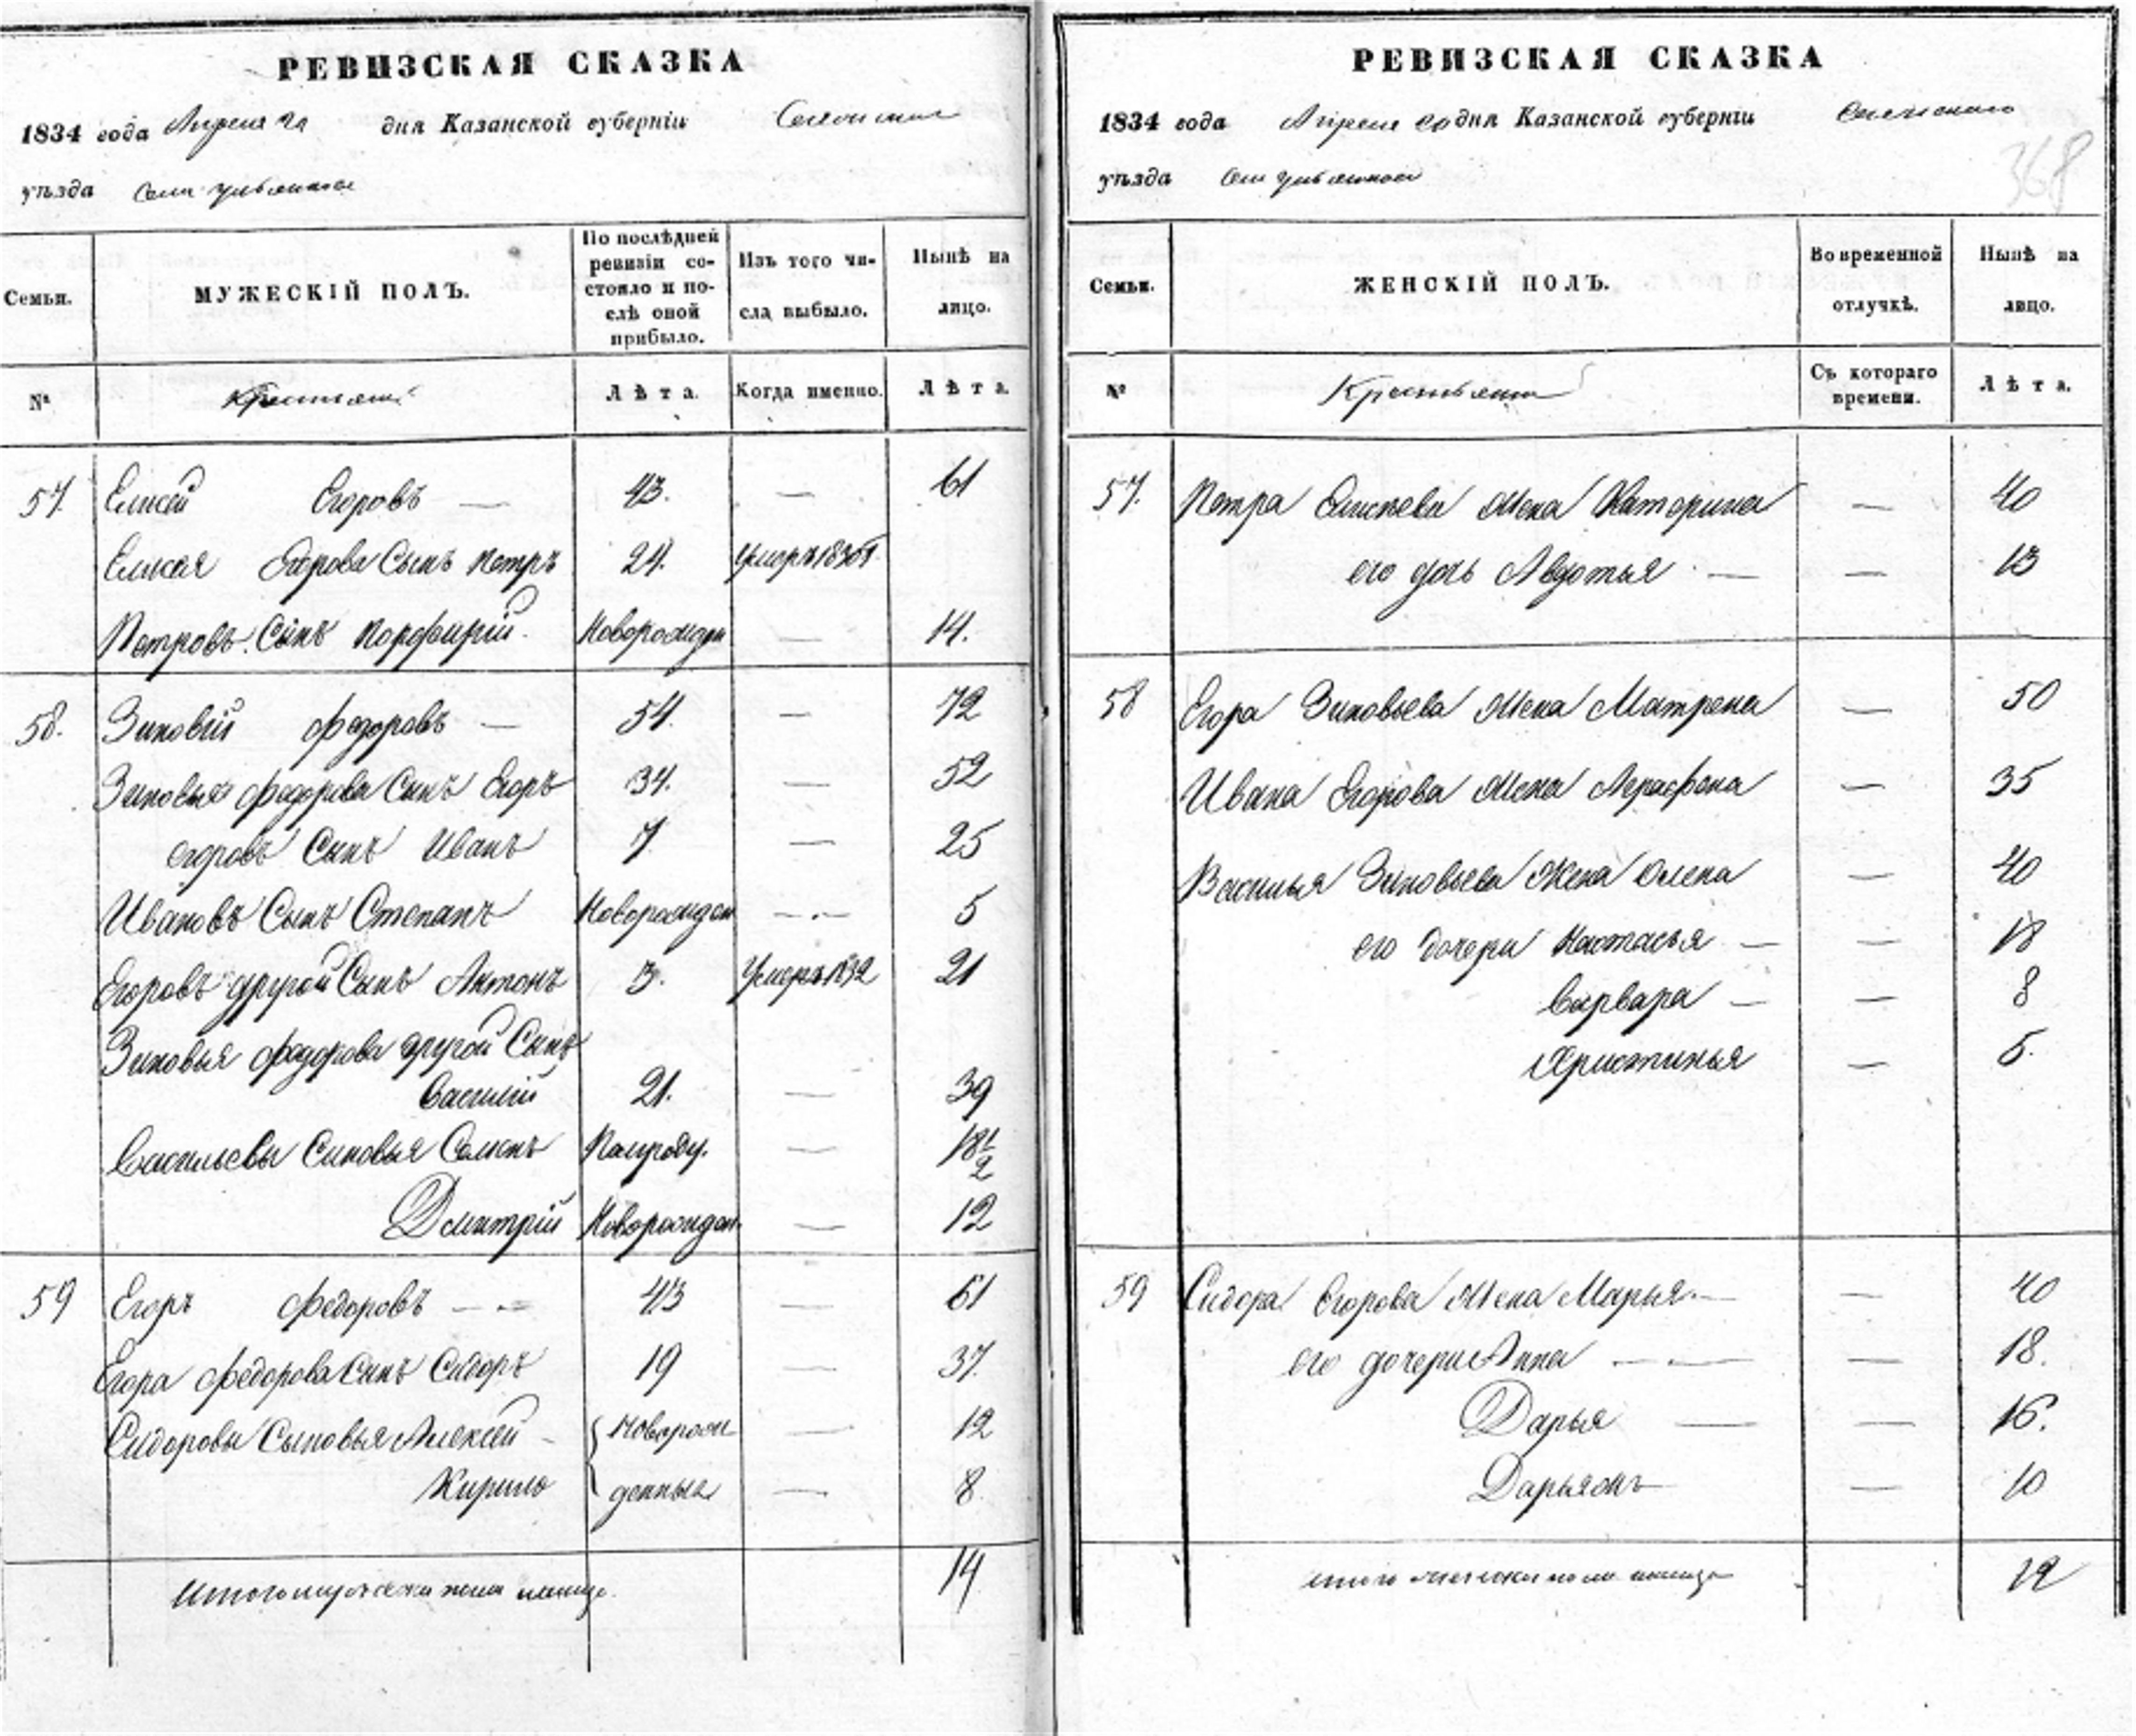 РЕВИЗСКАЯ СКАЗКА
1834 года Апреля 20 дня Казанской губерніи
уѣзда Села
Семьи.
МУЖЕСКІЙ ПОЛЪ.
По послѣдней ревизіи со-
стояло и по-
слѣ оной
прибыло.
Изъ того чи-
сла выбыло.
Нынѣ на
лицо.
№
Крестьяне
Лѣта.
Когда именно.
Лѣта.
57. Елисей Егоровъ — 43. — 61
Елисея Егорова Сынъ Петръ 24. Умеръ
Петровъ Сынъ Порфирій. Новорожден — 14.
58. Зиновій Федоровъ — 54. — 72
Зиновья Федорова Сынъ Егоръ 34. — 52
Егоровъ Сынъ Иванъ 7 — 25
Ивановъ Сынъ Степанъ Новорожден — 5
Егоровъ другой Сынъ Антонъ 3. Умеръ 1832 21
Зиновья Федорова другой Сынъ
Василій 21. — 39
Васильевы Сыновья Семенъ — 18 1/2
Дмитрій Новорожден — 12
59 Егоръ Федоровъ — 43 — 61
Егора Федорова Сынъ Сидоръ 19 — 37.
Сидоровы Сыновья Алексей - Новорож — 12
Кирило денныя — 8
Итого мужеска пола налицо. 14
РЕВИЗСКАЯ СКАЗКА
1834 года Апреля 20 дня Казанской губерніи
368
уѣзда Села
Семьи.
ЖЕНСКІЙ ПОЛЪ.
Во временной
отлучкѣ.
Нынѣ на
лицо.
№
Крестьяне
Съ котораго
времени.
Лѣта.
57. Петра Елисѣева Жена Катерина — 40
его дочь Авдотья — — 13
58 Егора Зиновьева Жена Матрена — 50
Ивана Егорова Жена Аграфена — 35
Василья Зиновьева Жена Олена — 40
его дочери Настасья — — 18
Варвара — — 8
Христинья — 5.
59 Сидора Егорова Жена Марья — — 40
его дочери Анна — — 18.
Дарья — — 16.
— 10
итого женска пола налицо 12